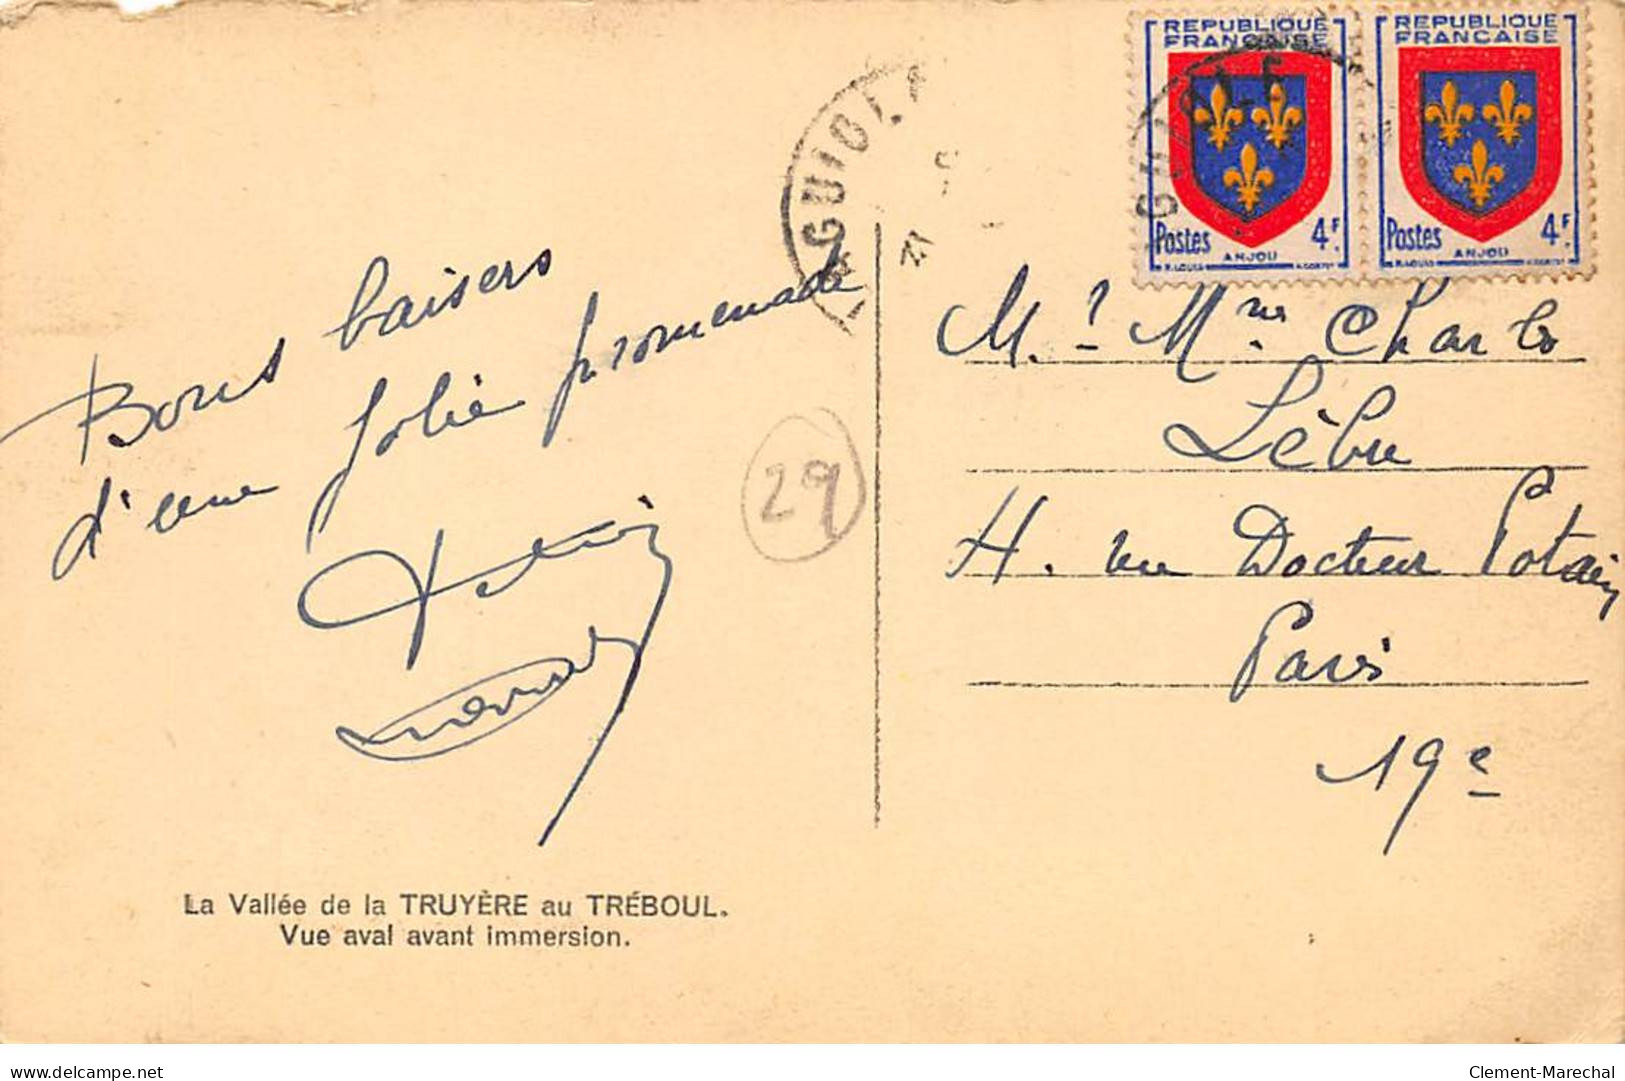 REPUBLIQUE
FRANCAISE
Postes 4F
ANJOU
REPUBLIQUE
FRANCAISE
Postes 4F
ANJOU
Bons baisers
d'une jolie promenade
29
M. Mme Charles
Lèbre
rue Docteur Potain
Paris
19e
La Vallée de la TRUYÈRE au TRÉBOUL.
Vue aval avant immersion.
www.delcampe.net
Clement-Marechal